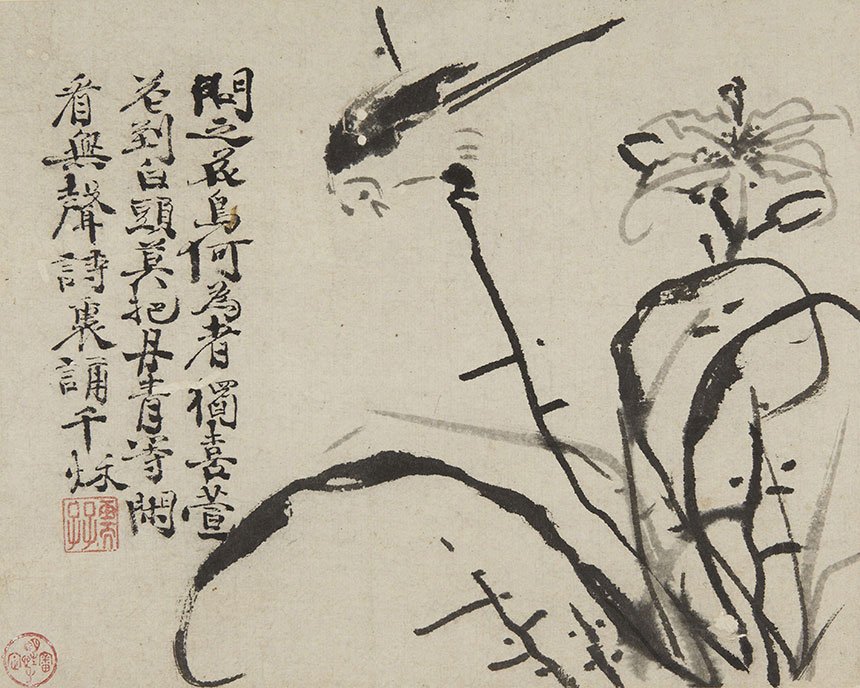 問之花鳥何為者獨喜萱
花到白頭莫把丹青等閑
看無聲詩裏誦千秌